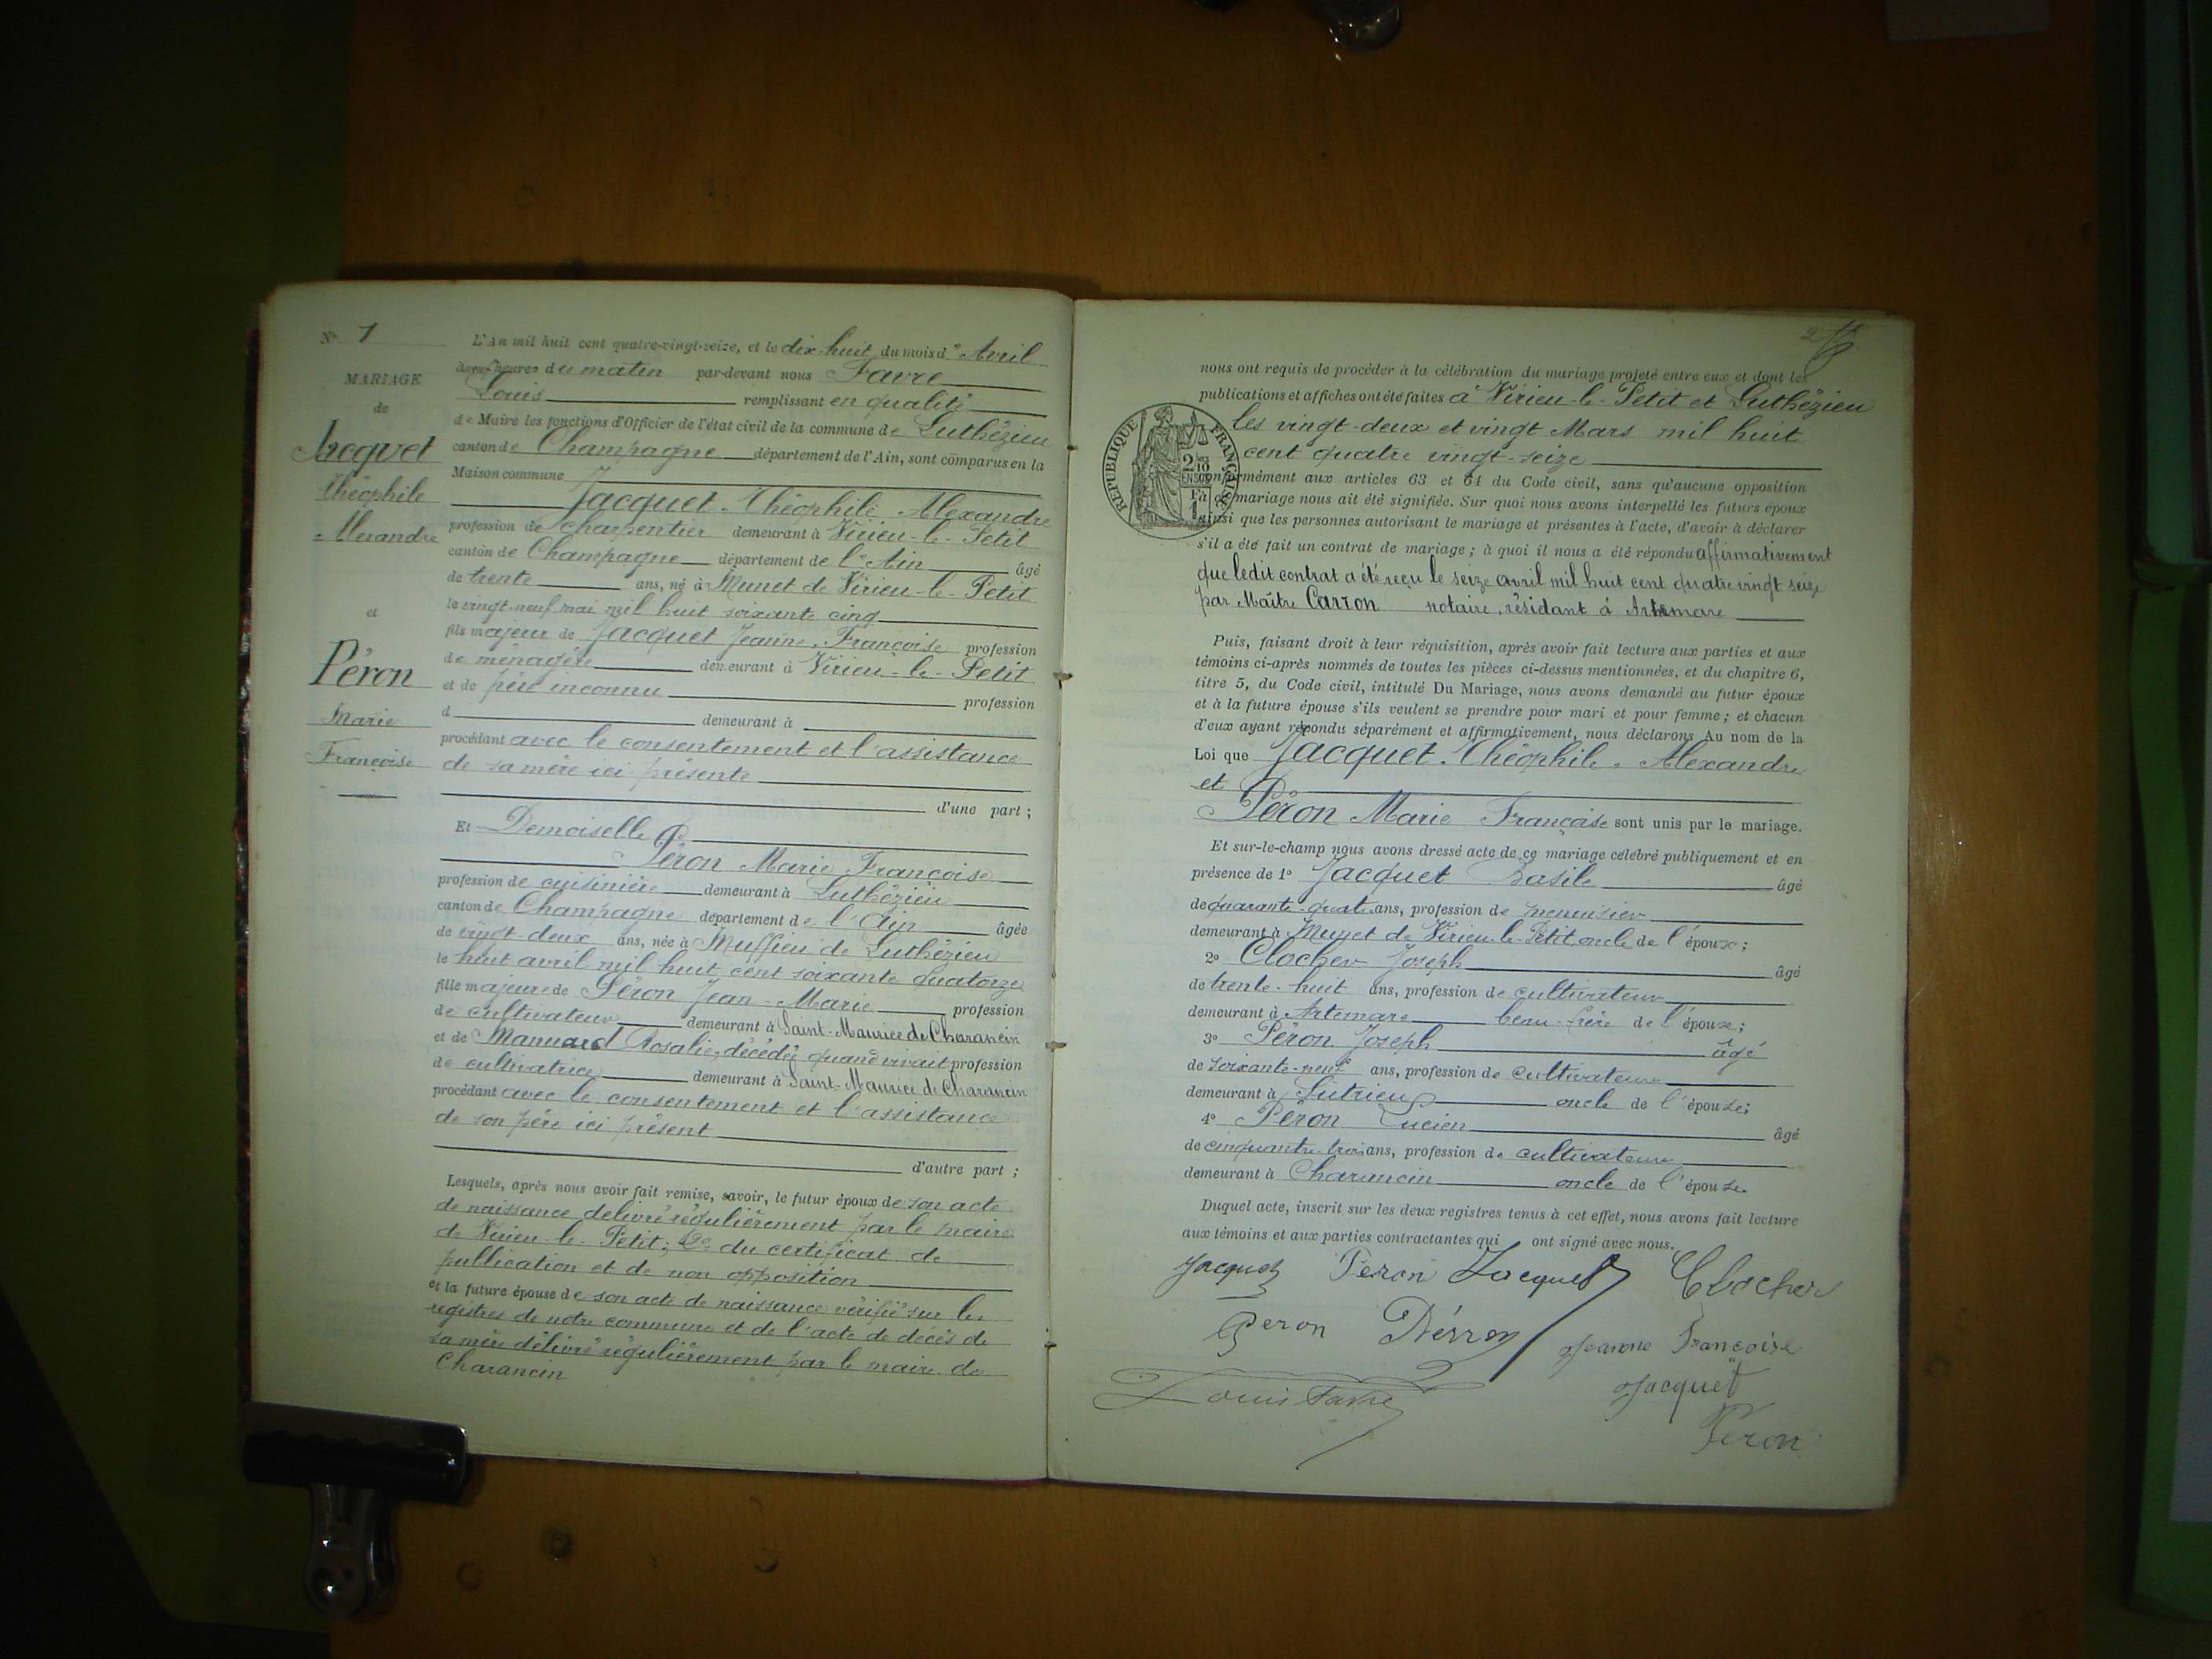 N° 1
MARIAGE
de
Jacquet
Théophile
Alexandre
et
Péron
Marie
Françoise
L'An mil huit cent quatre-vingt-seize, et le dix-huit du mois d'Avril
à neuf heures du matin par-devant nous Favre
Louis remplissant en qualité
de Maire les fonctions d'Officier de l'état civil de la commune de Luthézieu
canton de Champagne département de l'Ain, sont comparus en la
Maison commune
Jacquet Théophile Alexandre
profession de charpentier demeurant à Virieu-le-Petit
canton de Champagne département de l'Ain âgé
de trente ans, né à Munet de Virieu-le-Petit
le vingt-neuf mai mil huit soixante cinq
fils majeur de Jacquet Jeanne Françoise profession
de ménagère demeurant à Virieu-le-Petit
et de père inconnu profession
d demeurant à
procédant avec le consentement et l'assistance
de sa mère ici présente
d'une part ;
Et Demoiselle
Péron Marie Françoise
profession de cuisinière demeurant à Luthézieu
canton de Champagne département de l'Ain âgée
de vingt-deux ans, née à Muffieu de Luthézieu
le huit avril mil huit cent soixante quatorze
fille majeure de Péron Jean-Marie profession
de cultivateur demeurant à Saint-Maurice de Charancin
et de Mannard Rosalie, décédée quand vivait profession
de cultivatrice demeurant à Saint-Maurice de Charancin
procédant avec le consentement et l'assistance
de son père ici présent
d'autre part ;
Lesquels, après nous avoir fait remise, savoir, le futur époux de son acte
de naissance délivré régulièrement par le maire
de Virieu-le-Petit; 2° du certificat de
publication et de non opposition
et la future épouse de son acte de naissance vérifié sur les
registres de notre commune et de l'acte de décès de
sa mère délivré régulièrement par le maire de
Charancin
nous ont requis de procéder à la célébration du mariage projeté entre eux et dont les
publications et affiches ont été faites à Virieu-le-Petit et Luthézieu
les vingt-deux et vingt Mars mil huit
cent quatre vingt-seize
RÉPUBLIQUE FRANÇAISE
conformément aux articles 63 et 64 du Code civil, sans qu'aucune opposition
mariage nous ait été signifiée. Sur quoi nous avons interpellé les futurs époux
ainsi que les personnes autorisant le mariage et présentes à l'acte, d'avoir à déclarer
s'il a été fait un contrat de mariage ; à quoi il nous a été répondu affirmativement
que ledit contrat a été reçu le seize avril mil huit cent quatre vingt seize
par Maître Carron notaire, résidant à Artemare
Puis, faisant droit à leur réquisition, après avoir fait lecture aux parties et aux
témoins ci-après nommés de toutes les pièces ci-dessus mentionnées, et du chapitre 6,
titre 5, du Code civil, intitulé Du Mariage, nous avons demandé au futur époux
et à la future épouse s'ils veulent se prendre pour mari et pour femme ; et chacun
d'eux ayant répondu séparément et affirmativement, nous déclarons Au nom de la
Loi que Jacquet Théophile Alexandre
et
Péron Marie Françoise sont unis par le mariage.
Et sur-le-champ nous avons dressé acte de ce mariage célébré publiquement et en
présence de 1° Jacquet Basile âgé
de quarante-quatre ans, profession de menuisier
demeurant à Munet de Virieu-le-Petit oncle de l'époux ;
2° Clocher Joseph âgé
de trente-huit ans, profession de cultivateur
demeurant à Artemare beau-frère de l'époux ;
3° Péron Joseph âgé
de soixante-neuf ans, profession de cultivateur
demeurant à Lutrieu oncle de l'épouse ;
4° Péron Lucien âgé
de cinquante trois ans, profession de cultivateur
demeurant à Charancin oncle de l'épouse
Duquel acte, inscrit sur les deux registres tenus à cet effet, nous avons fait lecture
aux témoins et aux parties contractantes qui ont signé avec nous.
Jacquet Peron Jacquet Clocher
Peron Pérron Jeanne Françoise
Louis Favre Jacquet
Péron